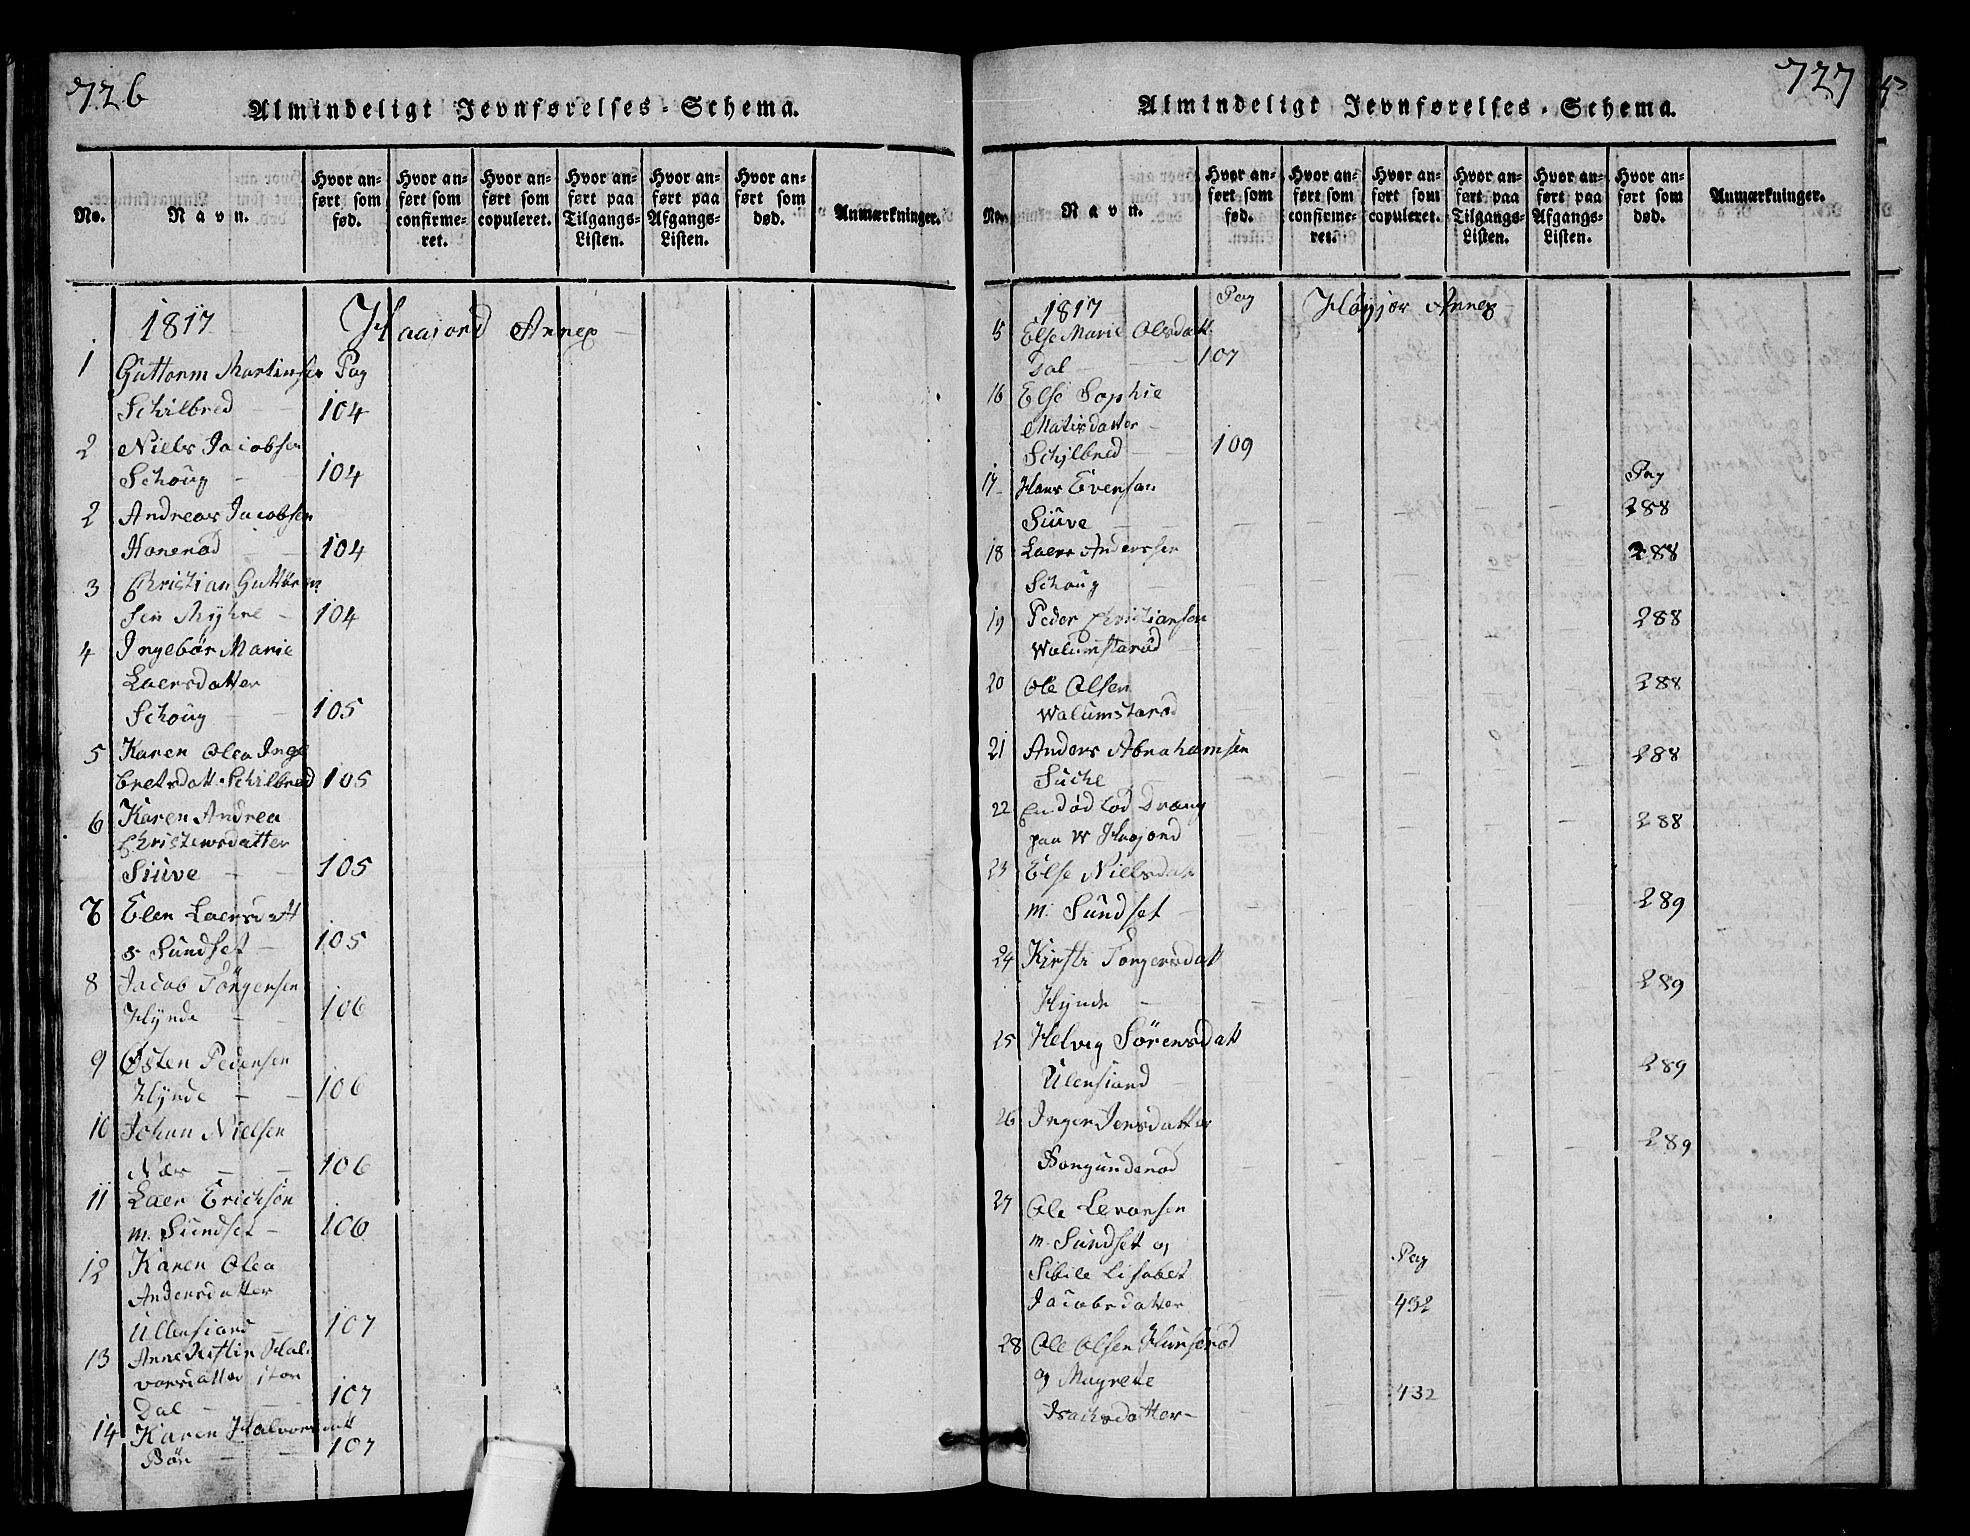 726
Almindeligt Jevnførelses-Schema.
No.
Navn.
Hvor anført som fød.
Hvor anført som confirmeret.
Hvor anført som copuleret.
Hvor anført paa Tilgangs-Listen.
Hvor anført paa Afgangs-Listen.
Hvor anført som død.
Anmærkninger.
1817 Haasord Annex
1 Guttorm Martinsen Pag
Schilbred 104
2 Niels Jacobsen
Schoug 104
2 Andreas Jacobsen
Honerød 104
3 Christian Guttorm
sen Myhre 104
4 Ingebor Marie
Laersdatter
Schoug 105
5 Karen Olea Inge
bretsdatt Schilbred 105
6 Karen Andrea
Christensdatter
Siuve 105
7 Elen Laersdatt
s Sundset 105
8 Jacob Torgersen
Hynde 106
9 Østen Pedersen
Hynde 106
10 Johan Nielsen
Nær 106
11 Laer Ericksøn
m. Sundset 106
12 Karen Olea
Andersdatter
Ullensiord 107
13 Anne Kistin Hal
vorsdatter stor
Dal 107
14 Karen Halvorsdatt
Bön 107
727
Almindeligt Jevnførelses-Schema.
No.
Navn.
Hvor anført som fød.
Hvor anført som confirmeret.
Hvor anført som copuleret.
Hvor anført paa Tilgangs-Listen.
Hvor anført paa Afgangs-Listen.
Hvor anført som død.
Anmærkninger.
1817 Pag Høyjor Annex
5 Else Marie Olsdatt
Dal 107
16 Else Sophie
Matisdatter
Schilbred 109
17 Hans Evensen Pag
Siuve 288
18 Laers Anderssen 288
Schoug
19 Peder Christiansen 288
Walumstarød
20 Ole Olsen 288
Walumstarød
21 Anders Abrahamsen 288
Suche
22 En død fød Dræng 288
paa W Haajord
23 Else Nielsdat
m. Sundset 289
24 Kirsti Torgersdatt
Hynde 289
25 Helvig Sörensdatt
Ulensiord 289
26 Inger Jensdatter
Borgunderød 289
27 Ole Levorsen
m. Sundset og
Sibile Lisabet Pag
Jacobsdatter 432
28 Ole Olsen Hunserød
og Magrete 432
Isachsdatter